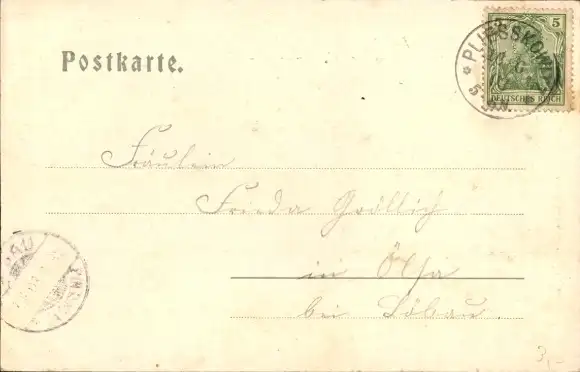 Postkarte.
5
DEUTSCHES REICH
* PLIESSKOWITZ
5-6N.
Fräulein
Frieda
in Ölsa
bei Löbau.
3,-